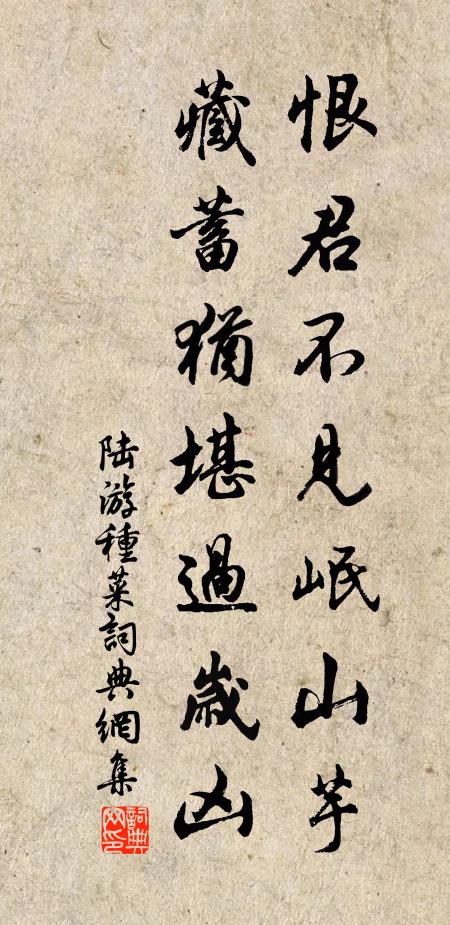 恨君不見岷山芋
藏蓄猶堪過歲凶
陆游種菜詞典網集
詞典網印